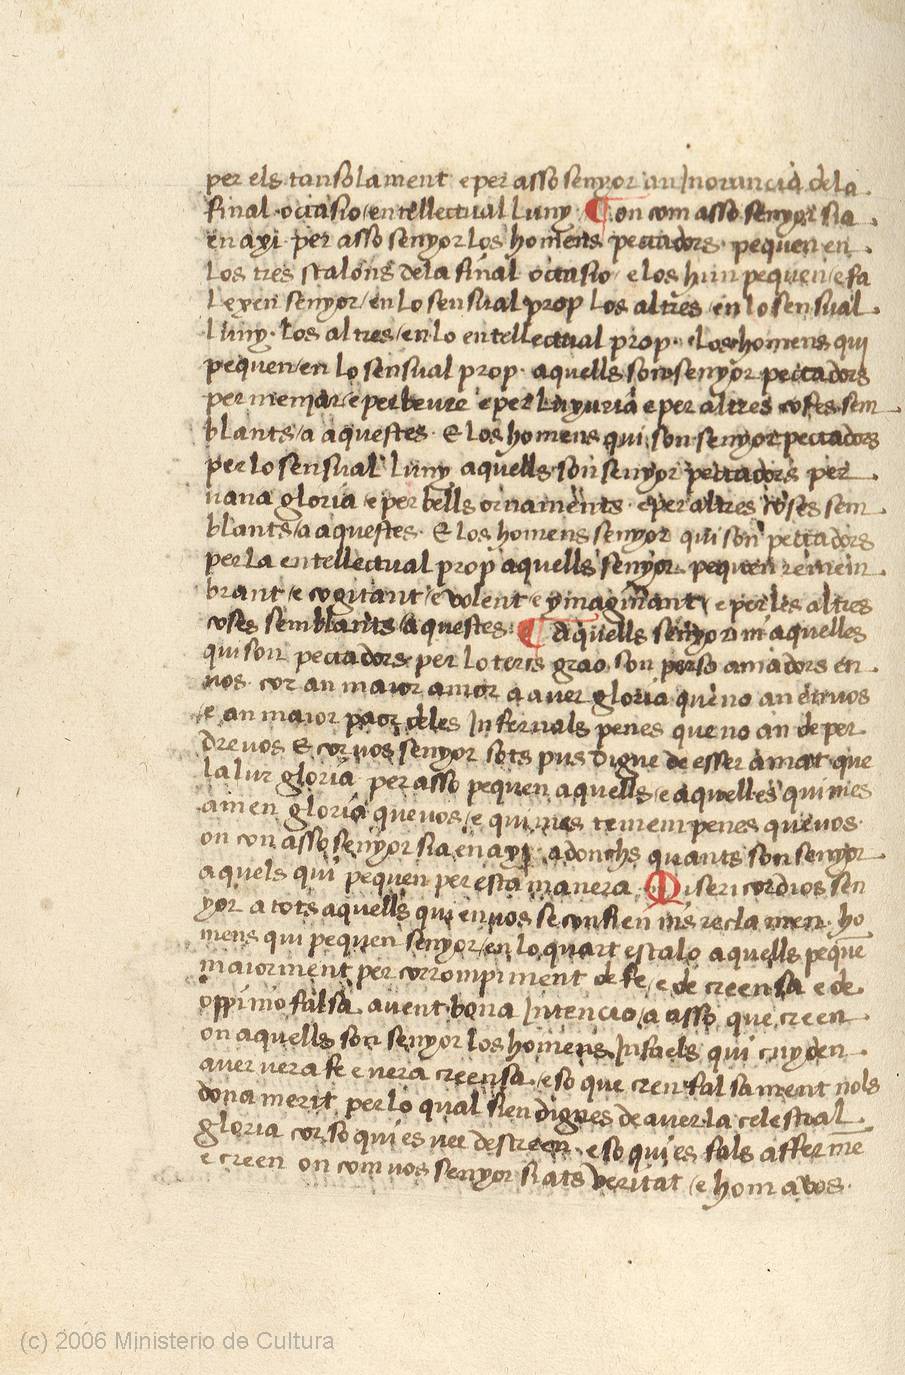 per els tansolament e per asso senyor an Inorancia de la
final occasio / entellectual luny ¶ on com asso senyor sia
en axi per asso senyor los homens peccadors pequen en
los tres scalons dela final occasio / e los hun pequen / e fa
lexen senyor / en lo sensual prop los altres / en lo sensual
luny · los altres / en lo entellectual prop · e los homens qui
pequen / en lo sensual prop · aquells son senyor peccadors
per menjar / e per beure e per luxuria e per altres coses sem
blants / a aquestes · E los homens qui son senyor peccadors
per lo sensual luny aquells son senyor peccadors per
vana gloria / e per bells ornaments · e per altres coses sem
blants / a aquestes · E los homens senyor qui son peccadors
per la entellectual prop aquells senyor pequen remem
brant / e cogitant / e volent / e ymaginant / e per les altres
coses semblants / a aquestes · ¶ aquells senyor m aquelles
qui son peccadors per lo terts grao son perso amadors en
vos · cor an maior amor a aver gloria que no an en vos
/ e an maior paor deles Infernals penes que no an de per
dre vos E cor vos senyor sots pus digne de esser amat que
la lur gloria per asso pequen aquells / e aquelles qui mes
amen gloria que vos / e qui mes temem penes que vos ·
on con asso senyor sia en axi · adonchs quants son senyor
aquels qui pequen per esta manera · Misericordios sen
yor a tots aquells qui en vos se confien ins reclamen · ho
mens qui pequen senyor / en lo quart escalo aquells peque
maiorment per corrompiment de fe / e de creensa e de
oppinio falsa avent bona Intencio / a asso que creen
on aquells son senyor los homens Infaels qui cuyden
aver vera fe e vera creensa / e so que cren falsament nols
dona merit per lo qual sien dignes de aver la celestial
gloria cor so qui es ver descreen · e so qui es fals afferme
e creen on com vos senyor siats veritat / e hom a vos ·
(c) 2006 Ministerio de Cultura